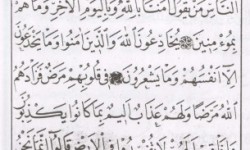 النَّاسِ مَنْ يَقُولُ اٰمَنَّا بِاللّٰهِ وَبِالْيَوْمِ الْاٰخِرِ وَمَا هُمْ
بِمُؤْمِنِينَ ۝ يُخَادِعُونَ اللّٰهَ وَالَّذِينَ اٰمَنُوا وَمَا يَخْدَعُونَ
اِلَّا اَنْفُسَهُمْ وَمَا يَشْعُرُونَ ۝ فِي قُلُوبِهِمْ مَرَضٌ فَزَادَهُمُ
اللّٰهُ مَرَضًا وَلَهُمْ عَذَابٌ اَلِيمٌ بِمَا كَانُوا يَكْذِبُونَ
وَاِذَا قِيلَ لَهُمْ لَا تُفْسِدُوا فِي الْاَرْضِ قَالُوا اِنَّمَا نَحْنُ